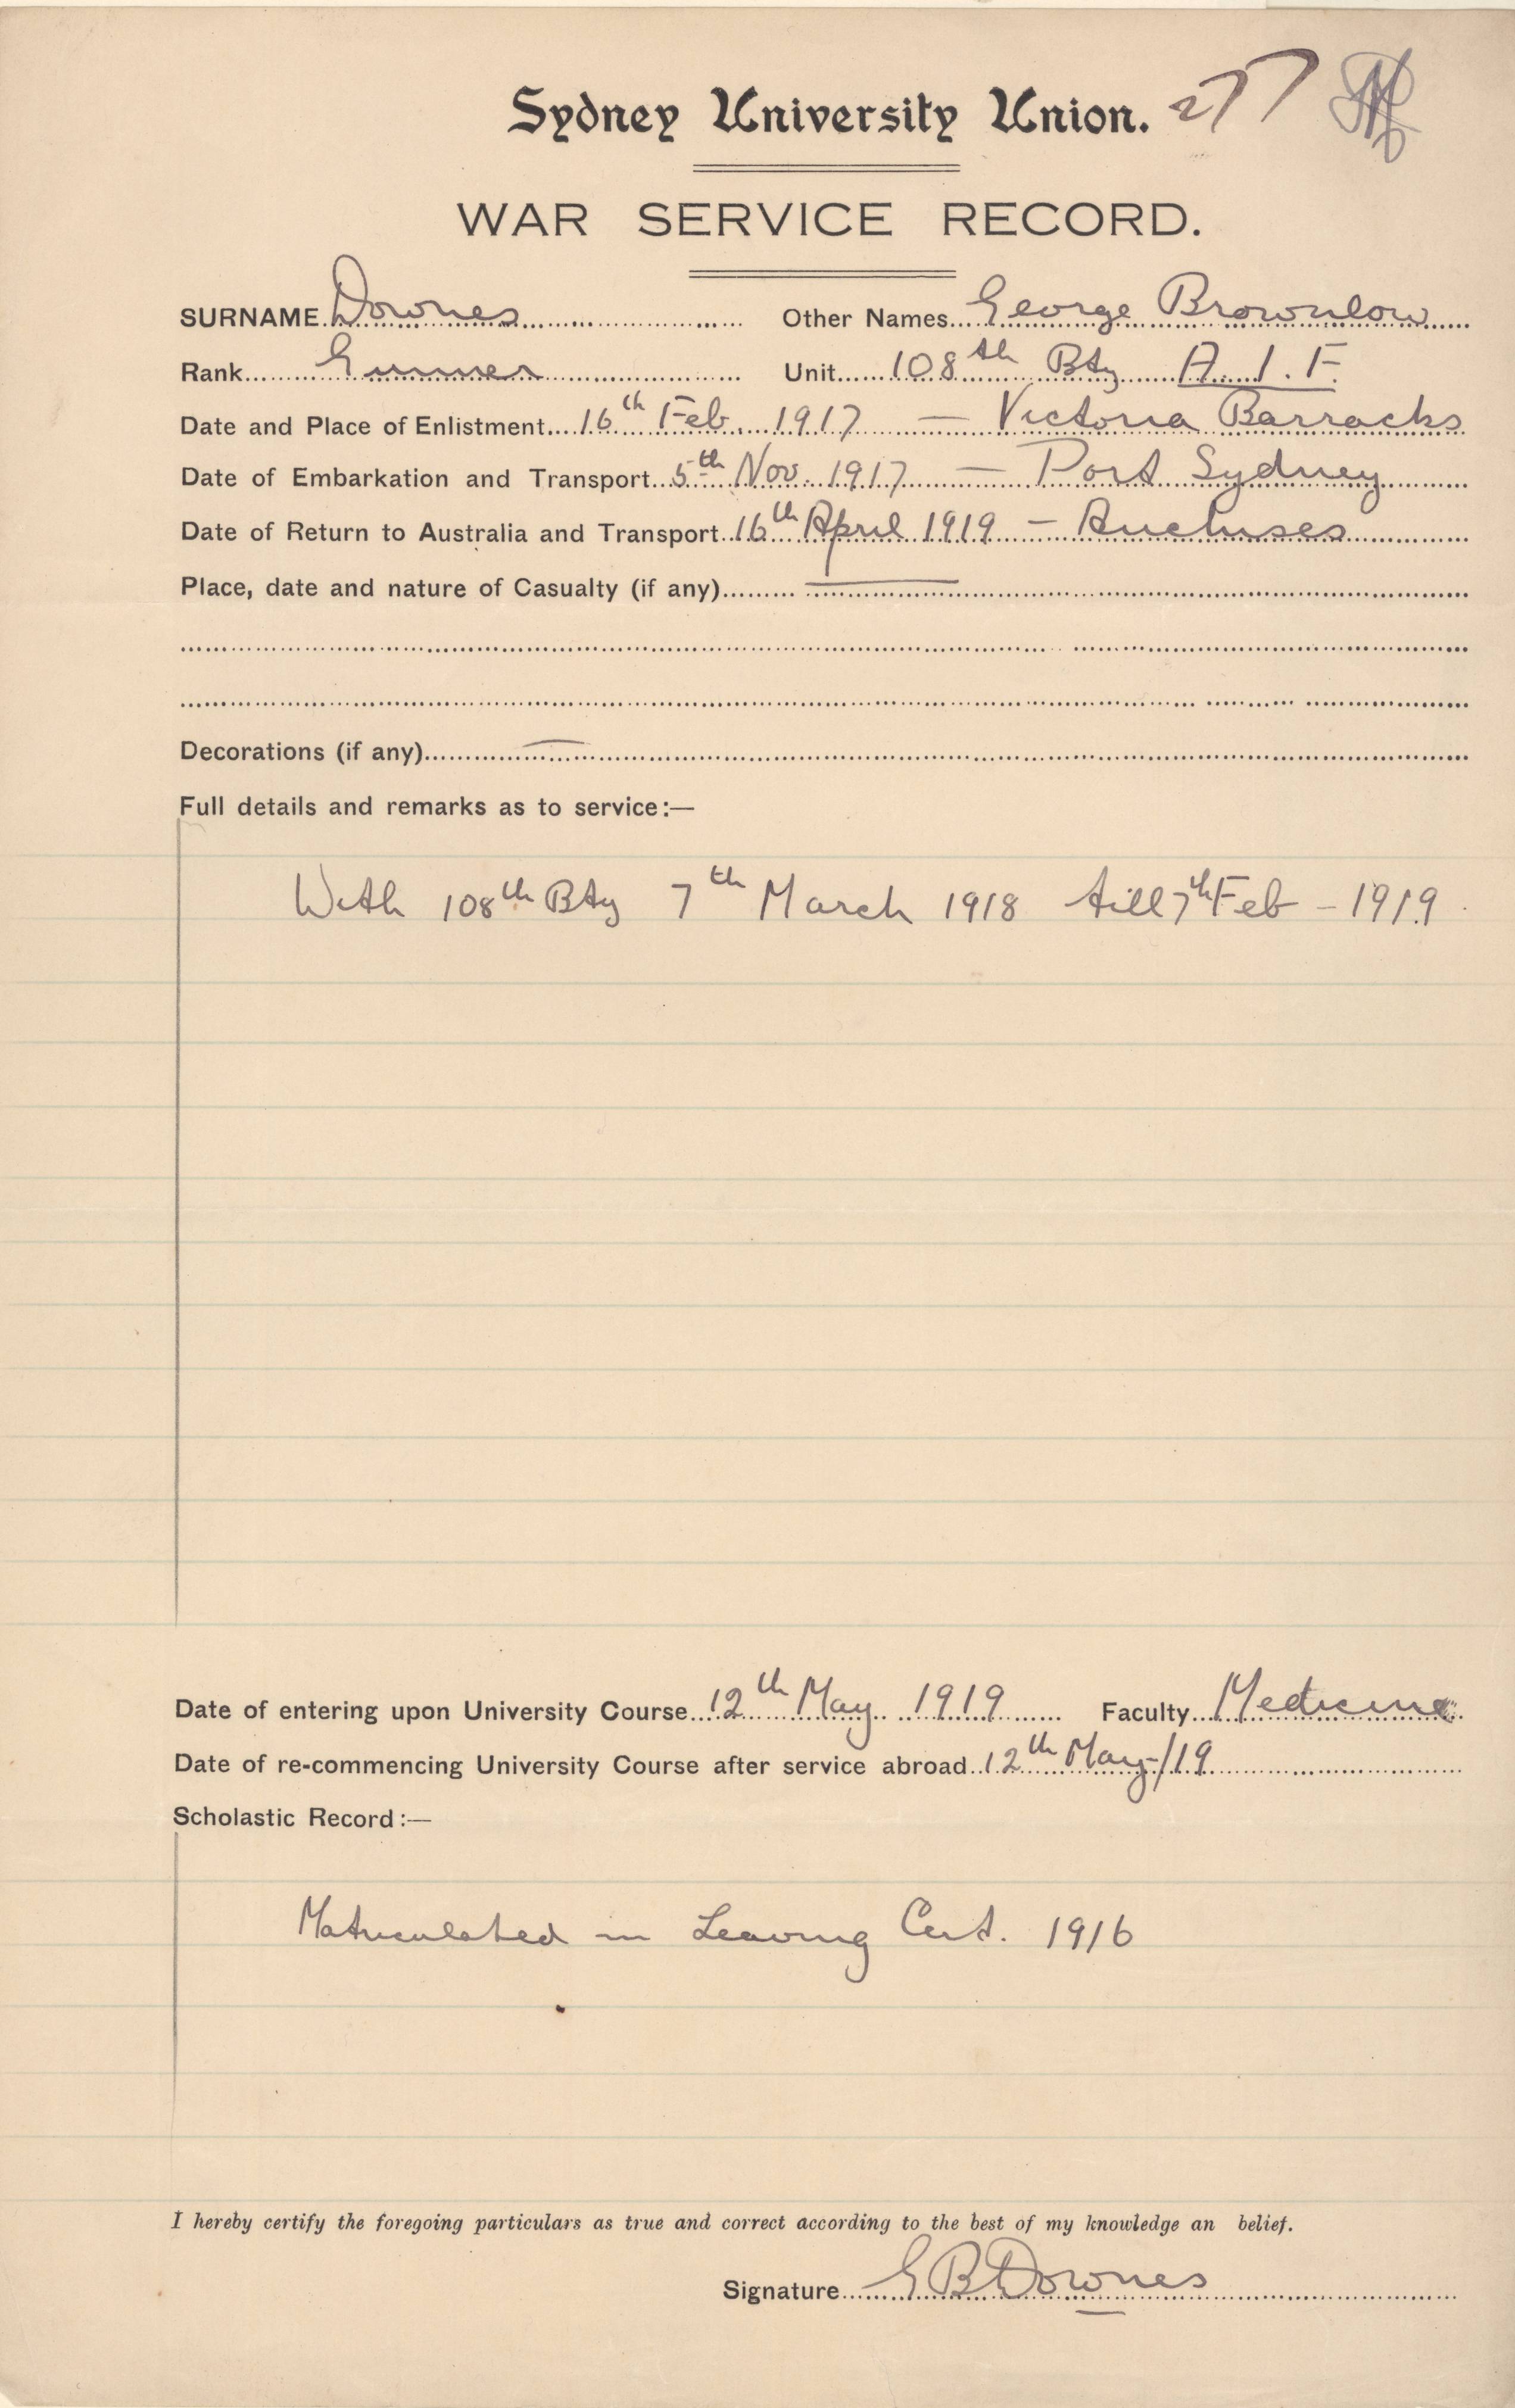 Sydney University Union. 277
WAR SERVICE RECORD.
SURNAME Downes Other Names George Brownlow
Rank Gunner Unit 108th Bty A.I.F.
Date and Place of Enlistment 16th Feb. 1917 — Victoria Barracks
Date of Embarkation and Transport 5th Nov. 1917 — Port Sydney
Date of Return to Australia and Transport 16th April 1919 — Anchises
Place, date and nature of Casualty (if any) —
Decorations (if any) —
Full details and remarks as to service:—
With 108th Bty 7th March 1918 till 7th Feb - 1919.
Date of entering upon University Course 12th May 1919 Faculty Medicine
Date of re-commencing University Course after service abroad 12th May/19
Scholastic Record:—
Matriculated in Leaving Cert. 1916
I hereby certify the foregoing particulars as true and correct according to the best of my knowledge an belief.
Signature G B Downes